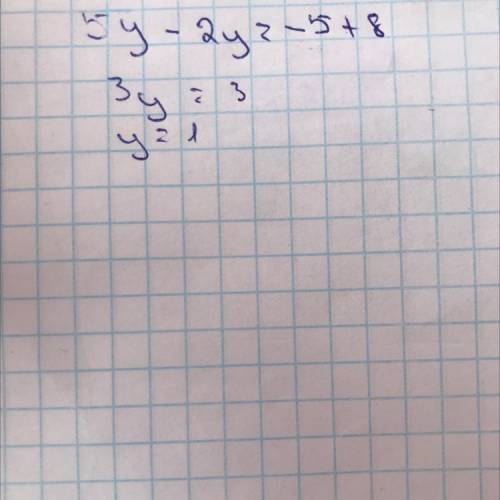 5y - 2y = -5 + 8
3y = 3
y = 1